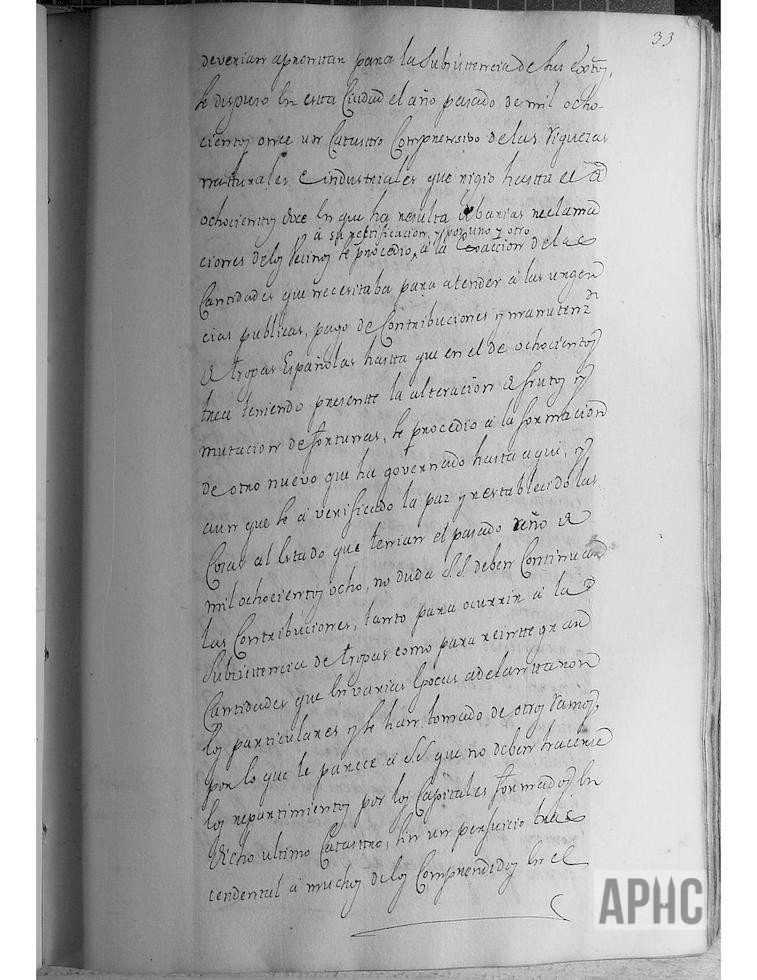 33
deverian aprontar para la Subsistencia de sus
se dispuso en esta Ciudad el año pasado de mil ocho-
cientos once un Catastro Comprensivo de las riquezas
naturales e industriales que rigio hasta el de
ochocientos doce en que ha resulta de barias reclama
a su rectificacion, y por uno y otro
ciones de los Vecinos se procedio, a la Exaccion de las
Cantidades que necesitaba para atender a las urgen
cias publicas, pago de Contribuciones y manutenz.on
de tropas Españolas hasta que en el de ochocientos
trece teniendo presente la alteracion de frutos y
mutacion de fortunas, se procedio a la formacion
de otro nuevo que ha governado hasta aqui, y
aun que se a verificado la paz y restablecido las
Cosas al estado que tenian el pasado año de
mil ochocientos ocho, no duda S.S. deben Continuar
las Contribuciones, tanto para ocurrir a la
Subsistencia de tropas como para reintegrar
Cantidades que en varias Epocas adelantaron
los particulares y se han tomado de otros ramos,
por lo que le parece a S.S. que no deben hacerse
los repartimientos por los Capitales formados en
dicho ultimo Catastro, sin un perjuicio tras
cendental a muchos de los Comprendidos en el
APHC